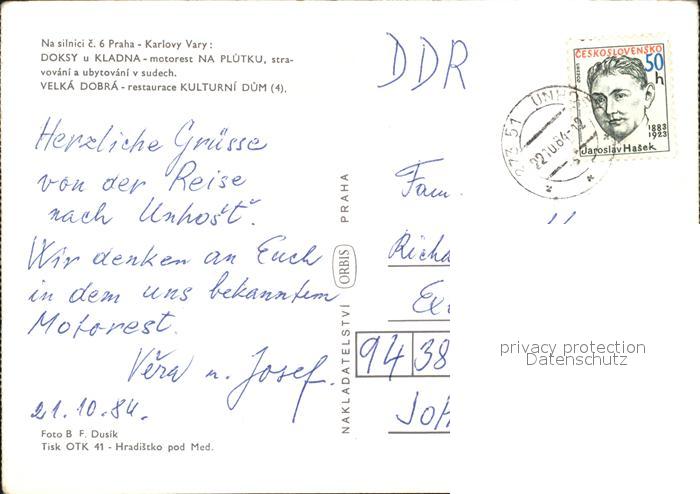 Na silnici č. 6 Praha - Karlovy Vary :
DOKSY u KLADNA - motorest NA PLŮTKU, stra-
vování a ubytování v sudech.
VELKÁ DOBRÁ - restaurace KULTURNÍ DŮM (4).
Herzliche Grüsse
von der Reise
nach Unhošť.
Wir denken an Euch
in dem uns bekanntem
Motorest.
Věra u. Josef.
21.10.84.
Foto B F. Dusík
Tisk OTK 41 - Hradištko pod Med.
NAKLADATELSTVÍ ORBIS PRAHA
DDR
ČESKOSLOVENSKO
50
h
1883
1923
Jaroslav Hašek
273 51 UNHOŠŤ
22.10.84-12
Fam.
Richa
94 38
privacy protection
Datenschutz